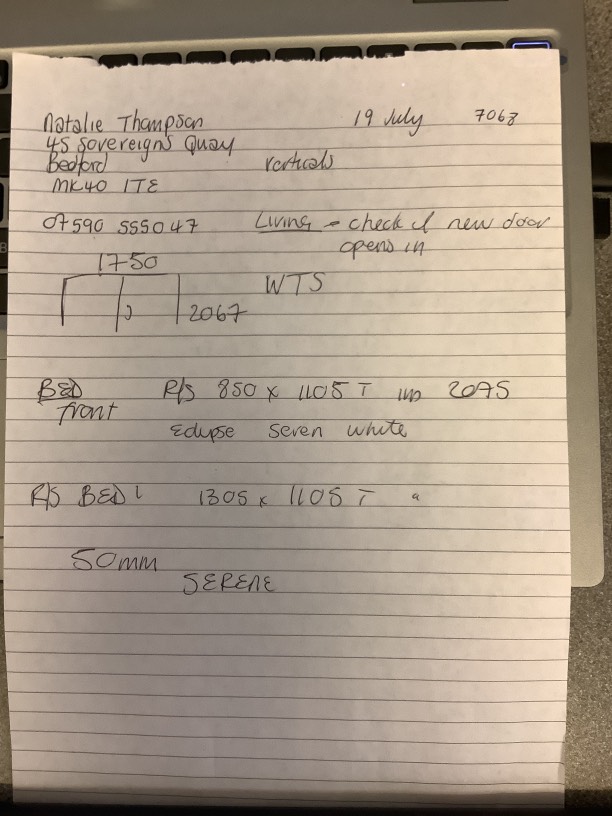 Natalie Thompson 19 July 7068
45 Sovereigns Quay
Bedford Verticals
MK40 1TE
07590 555047 Living - check if new door
opens in
1750
WTS
2067
BED R/S 850 x 1105 T 2075
front
Eclipse Seven white
R/S BED 1305 x 1105 T "
50mm
SERENE